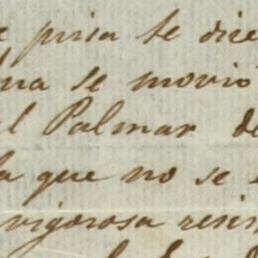 prisa se dice
se movió
el Palmar de
que no se
vigorosa resis